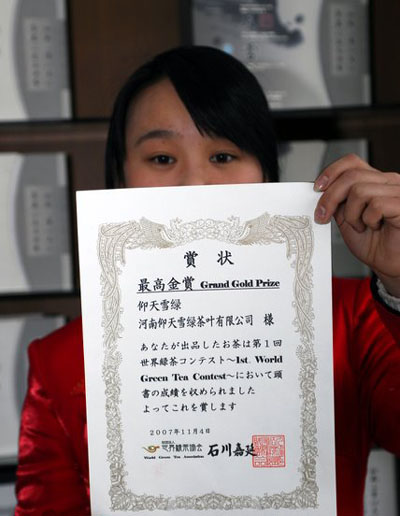 賞状
最高金賞 Grand Gold Prize
仰天雪绿
河南仰天雪绿茶叶有限公司 様
あなたが出品したお茶は第1回
世界緑茶コンテスト～1st. World
Green Tea Contest～において頭
書の成績を収められました
よってこれを賞します
2007年11月4日
世界緑茶協会
World Green Tea Association
石川嘉延